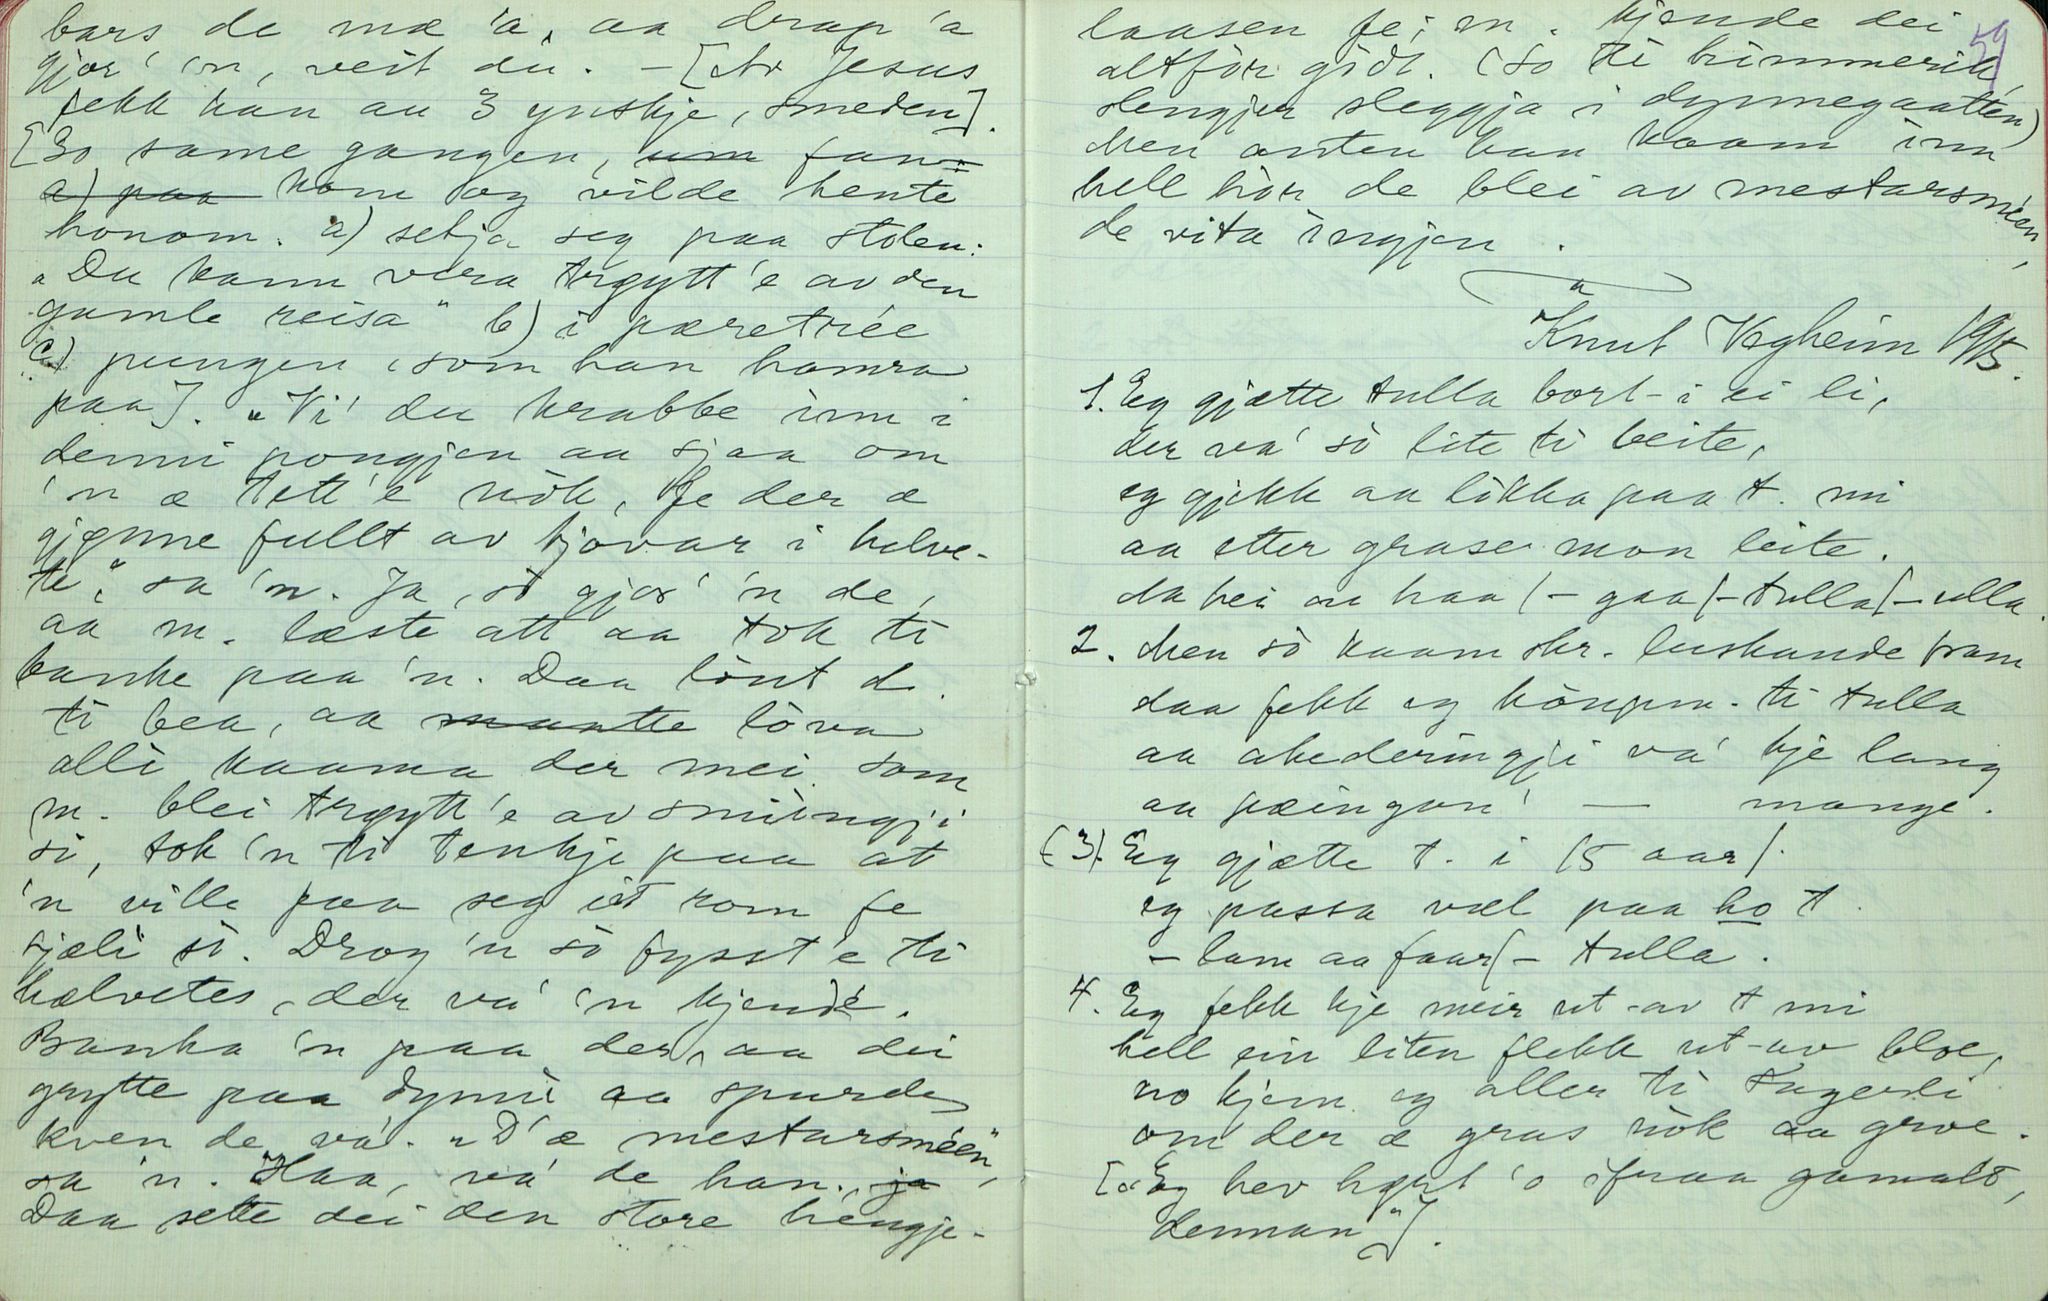 bars de mæ 'a, aa drap 'a
gjor' 'n, veit du. – [Av Jesus
fekk han au 3 ynskje, smeden].
[So same gangen, um fan
a) paa kom og vilde hente
honom. a) setja seg paa stolen:
"Du kann vera trøytt'e av den
gamle reisa" b) i pæretrée
c) pungen, som han hamra
paa]. "Vi' du krabbe inn i
denni pongjen aa sjaa om
'n æ tett'e nòk, fe der æ
gjønne fullt av tjovar i helve-
te," sa 'n. Ja, sò gjor' 'n de,
aa m. læste att aa tok ti
banke paa 'n. Daa lònt d.
ti bea, aa maatte lòva
alli kaama der mei. Som
m. blei trøytt'e av smiingji
si, tok 'n ti tenkje paa at
'n ville paa seg itt rom fe
sjæli si. Drog 'n sò fysst'e ti
hælvetes, der va' 'n kjend'e.
Banka 'n paa der, aa dei
gruste paa dynni aa spurde
kven de va'. "D'æ mestarsméen",
sa 'n. "Haa, va' de han. ja
Daa sette dei den store hengje-
59
laasen fe; m. kjende dei
altfor gòdt. (So ti himmerik,
slengjer sleggja i dynnegaatten)
Men anten han kaam inn
hell hòr de blei av mestarsméen,
de vita ingjen.
Knut Vegheim 1915.
1. Eg gjætte tulla bort-i ei li,
der va' sò lite ti beite,
eg gjekk aa likka paa t. mi
aa etter grase mon leite.
da hei aa haa /– gaa /– tulla /– ulla.
2. Men sò kaam skr. luskande fram
daa fekk eg hòngen. ti tulla
aa akederingji va' kje lang
aa pæingan' — mange.
(3). Eg gjætte t. i 15 aar/.
eg passa væl paa ho t.
– lam aa faar/– tulla.
4. Eg fekk kje meir ut-av t mi
hell ein liten flekk ut-av bloe,
no kjem eg aller ti Fagerli
om der æ gras nòk aa groe.
["Eg hev høyrt 'o ifraa gamalt,
denman"].